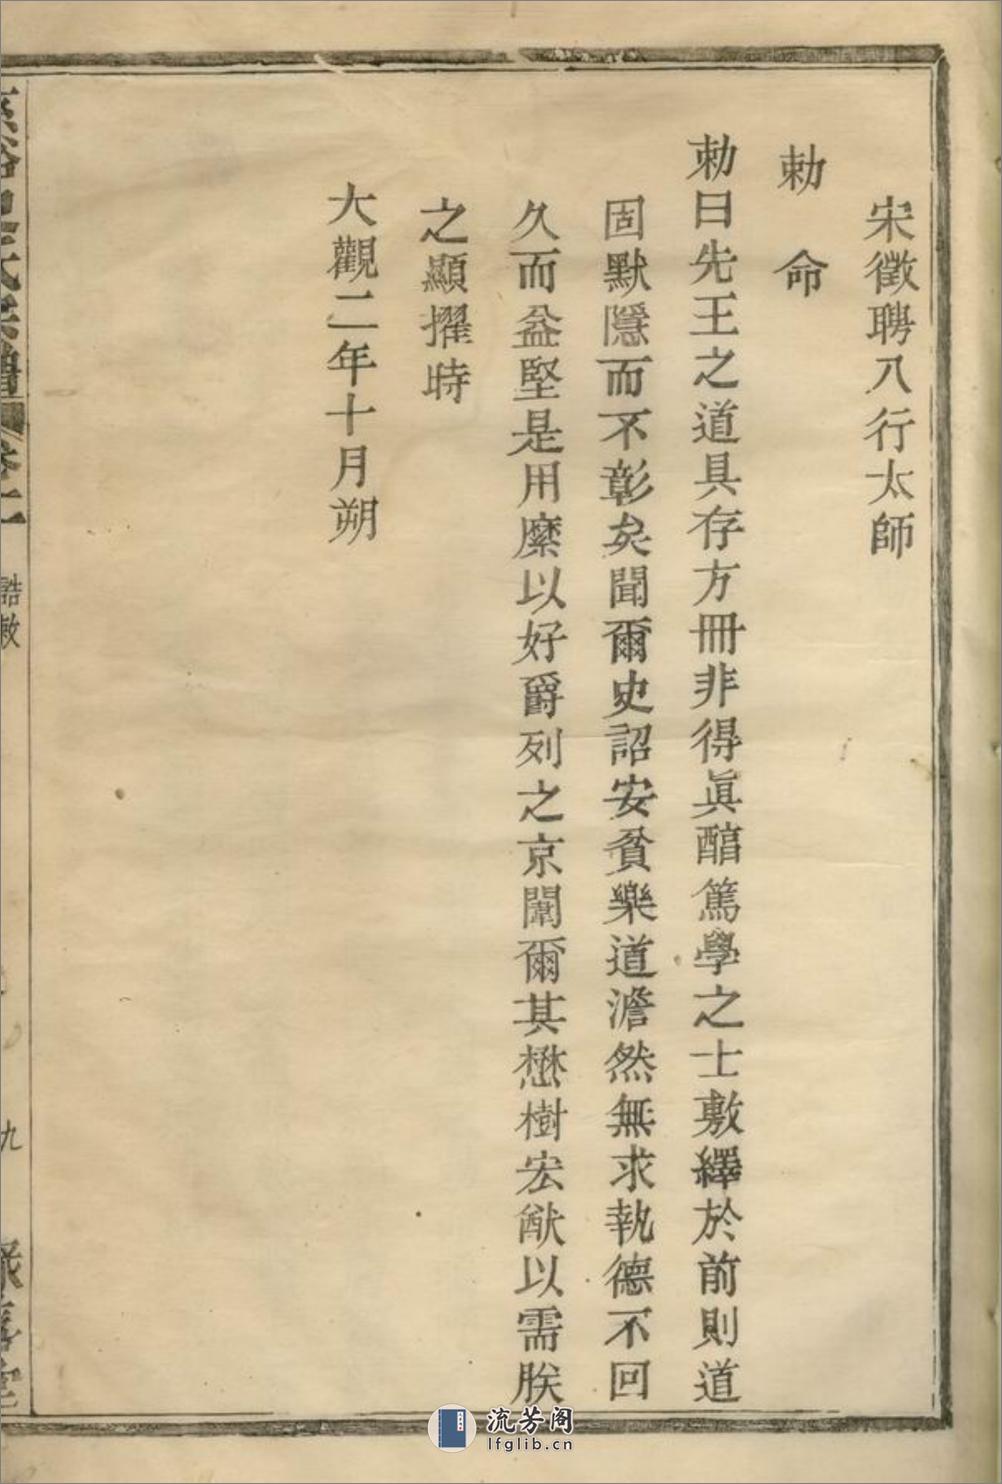 宋徵聘八行太師
勅命
勅曰先王之道具存方冊非得眞醕篤學之士敷繹於前則道
固默隱而不彰矣聞爾史詔安貧樂道澹然無求執德不回
久而益堅是用縻以好爵列之京闈爾其懋樹宏猷以需朕
之顯擢時
大觀二年十月朔
誥敕
九
流芳阁
lfglib.cn